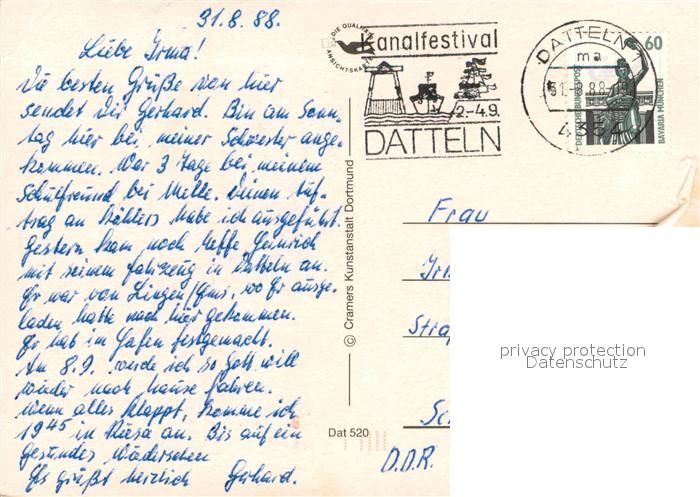 31.8.88.
Liebe Irma!
Die besten Grüße von hier
sendet Dir Gerhard. Bin am Sonn-
tag hier bei meiner Schwester ange-
kommen. War 3 Tage bei meinem
Schulfreund bei Melle. Deinen Auf-
trag an Köhlers habe ich ausgeführt.
Gestern kam noch Neffe Heinrich
mit seinem Fahrzeug in Datteln an.
Er war von Lingen/Ems, wo Er ausge-
laden hatte nach hier gekommen.
Er hat im Hafen festgemacht.
Am 8.9. werde ich so Gott will
wieder nach hause fahren.
Wenn alles klappt, komme ich
19⁴⁵ in Riesa an. Bis auf ein
gesundes Wiedersehen
Es grüßt herzlich Gerhard.
DIE QUALITÄTS
ANSICHTSKARTE
Kanalfestival
2.-4.9.
DATTELN
DATTELN 1
ma
31.-8.88
4354
60
DEUTSCHE BUNDESPOST
BAVARIA MÜNCHEN
© Cramers Kunstanstalt Dortmund
Dat 520
Frau
Ir
Straß
D.D.R.
privacy protection
Datenschutz